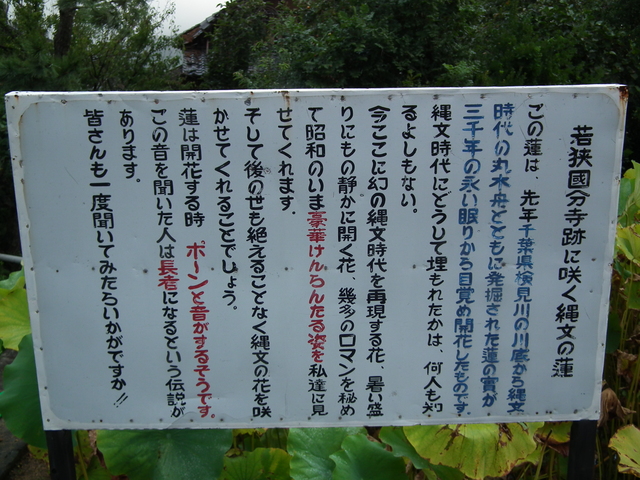 若狭國分寺跡に咲く縄文の蓮
この蓮は、先年千葉県検見川の川底から縄文
時代の丸木舟とともに発掘された蓮の實が
三千年の永い眠りから目覚め開花したものです。
縄文時代にどうして埋もれたかは、何人も知
るよしもない。
今ここに幻の縄文時代を再現する花、暑い盛
りにもの静かに開く花、幾多のロマンを秘め
て昭和のいま豪華けんらんたる姿を私達に見
せてくれます。
そして後の世も絶えることなく縄文の花を咲
かせてくれることでしょう。
蓮は開花する時 ポーンと音がするそうです。
この音を聞いた人は長者になるという伝説が
あります。
皆さんも一度聞いてみたらいかがですか!!